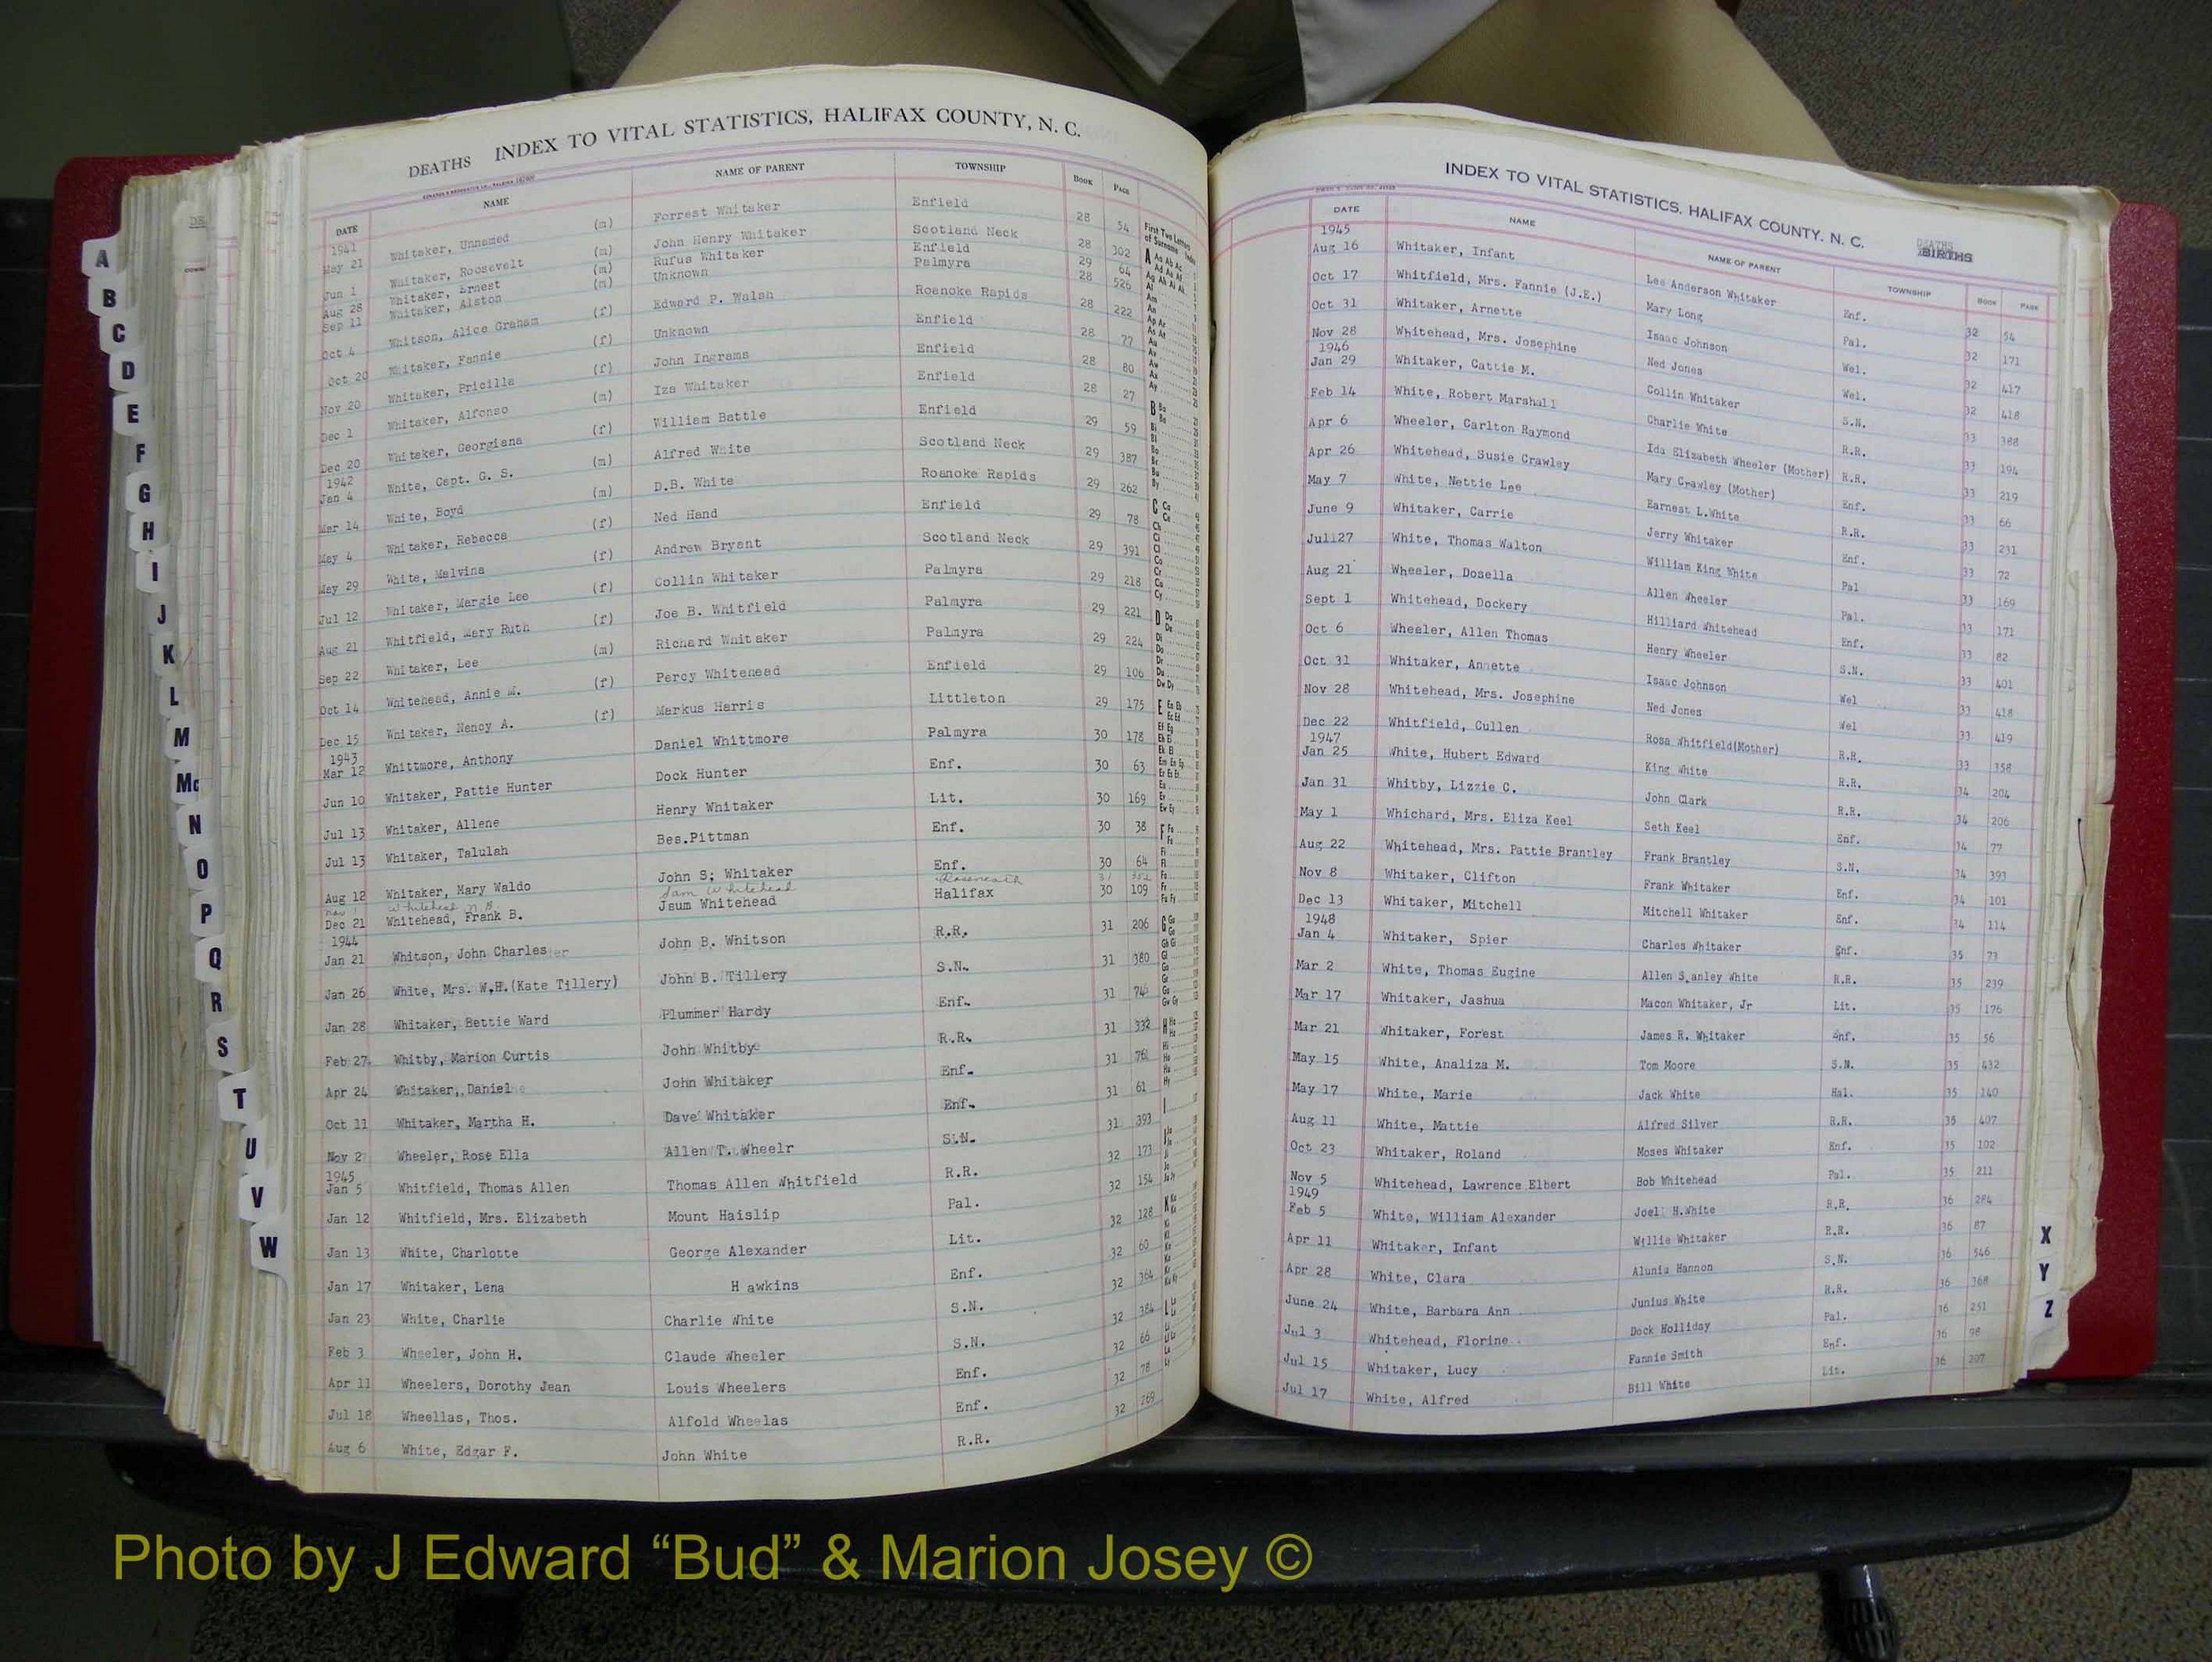 DEATHS INDEX TO VITAL STATISTICS, HALIFAX COUNTY, N. C.
DATE NAME NAME OF PARENT TOWNSHIP BOOK PAGE
1941
May 21 Whitaker, Unnamed (m) Forrest Whitaker Enfield 28 54
Jun 1 Whitaker, Roosevelt (m) John Henry Whitaker Scotland Neck 28 302
Aug 28 Whitaker, Ernest (m) Rufus Whitaker Enfield 29 64
Sep 11 Whitaker, Alston (m) Unknown Palmyra 28 526
Oct 4 Whitson, Alice Graham (f) Edward P. Walsh Roanoke Rapids 28 222
Oct 20 Whitaker, Fannie (f) Unknown Enfield 28 77
Nov 20 Whitaker, Pricilla (f) John Ingrams Enfield 28 80
Dec 1 Whitaker, Alfonso (m) Iza Whitaker Enfield 28 27
Dec 20 Whitaker, Georgiana (f) William Battle Enfield 29 59
1942
Jan 4 White, Capt. G. S. (m) Alfred White Scotland Neck 29 387
Mar 14 White, Boyd (m) D.B. White Roanoke Rapids 29 262
May 4 Whitaker, Rebecca (f) Ned Hand Enfield 29 78
May 29 White, Melvina (f) Andrew Bryant Scotland Neck 29 391
Jul 12 Whitaker, Margie Lee (f) Collin Whitaker Palmyra 29 218
Aug 21 Whitfield, Mary Ruth (f) Joe B. Whitfield Palmyra 29 221
Sep 22 Whitaker, Lee (m) Richard Whitaker Palmyra 29 224
Oct 14 Whitehead, Annie M. (f) Percy Whitehead Enfield 29 106
Dec 15 Whitaker, Nancy A. (f) Markus Harris Littleton 29 175
1943
Mar 12 Whittmore, Anthony Daniel Whittmore Palmyra 30 178
Jun 10 Whitaker, Pattie Hunter Dock Hunter Enf. 30 63
Jul 13 Whitaker, Allene Henry Whitaker Lit. 30 169
Jul 13 Whitaker, Talulah Bes.Pittman Enf. 30 38
Aug 12 Whitaker, Mary Waldo John S; Whitaker Enf. 30 64
Nov Whitehead N.B. Sam Whitehead Roseneath 31 352
Dec 21 Whitehead, Frank B. Jsum Whitehead Halifax 30 109
1944
Jan 21 Whitson, John Charles John B. Whitson R.R. 31 206
Jan 26 White, Mrs. W.H.(Kate Tillery) John B. Tillery S.N. 31 380
Jan 28 Whitaker, Bettie Ward Plummer Hardy Enf. 31 74
Feb 27 Whitby, Marion Curtis John Whitby R.R. 31 332
Apr 24 Whitaker, Daniel John Whitaker Enf. 31 76
Oct 11 Whitaker, Martha H. Dave Whitaker Enf. 31 61
Nov 2 Wheeler, Rose Ella Allen T. Wheelr S.N. 31 393
1945
Jan 5 Whitfield, Thomas Allen Thomas Allen Whitfield R.R. 32 173
Jan 12 Whitfield, Mrs. Elizabeth Mount Haislip Pal. 32 154
Jan 13 White, Charlotte George Alexander Lit. 32 128
Jan 17 Whitaker, Lena H awkins Enf. 32 60
Jan 23 White, Charlie Charlie White S.N. 32 364
Feb 3 Wheeler, John H. Claude Wheeler S.N. 32 384
Apr 11 Wheelers, Dorothy Jean Louis Wheelers Enf. 32 66
Jul 18 Wheellas, Thos. Alfold Wheelas Enf. 32 78
Aug 6 White, Edgar F. John White R.R. 32 269
First Two Letters of Surname Index
A
B
C
D
E
F
G
H
I
J
K
L
M
Mc
N
O
P
Q
R
S
T
U
V
W
INDEX TO VITAL STATISTICS, HALIFAX COUNTY, N. C. DEATHS BIRTHS
DATE NAME NAME OF PARENT TOWNSHIP BOOK PAGE
1945
Aug 16 Whitaker, Infant Lee Anderson Whitaker Enf. 32 54
Oct 17 Whitfield, Mrs. Fannie (J.E.) Mary Long Pal. 32 171
Oct 31 Whitaker, Arnette Isaac Johnson Wel. 32 417
Nov 28 Whitehead, Mrs. Josephine Ned Jones Wel. 32 418
1946
Jan 29 Whitaker, Cattie M. Collin Whitaker S.N. 33 388
Feb 14 White, Robert Marshall Charlie White R.R. 33 194
Apr 6 Wheeler, Carlton Raymond Ida Elizabeth Wheeler (Mother) R.R. 33 219
Apr 26 Whitehead, Susie Crawley Mary Crawley (Mother) Enf. 33 66
May 7 White, Nettie Lee Earnest L.White R.R. 33 231
June 9 Whitaker, Carrie Jerry Whitaker Enf. 33 72
Jul 27 White, Thomas Walton William King White Pal 33 169
Aug 21 Wheeler, Dosella Allen Wheeler Pal. 33 171
Sept 1 Whitehead, Dockery Hilliard Whitehead Enf. 33 82
Oct 6 Wheeler, Allen Thomas Henry Wheeler S.N. 33 401
Oct 31 Whitaker, Annette Isaac Johnson Wel 33 418
Nov 28 Whitehead, Mrs. Josephine Ned Jones Wel 33 419
Dec 22 Whitfield, Cullen Rosa Whitfield(Mother) R.R. 33 358
1947
Jan 25 White, Hubert Edward King White R.R. 34 204
Jan 31 Whitby, Lizzie C. John Clark R.R. 34 206
May 1 Whichard, Mrs. Eliza Keel Seth Keel Enf. 34 77
Aug 22 Whitehead, Mrs. Pattie Brantley Frank Brantley S.N. 34 393
Nov 8 Whitaker, Clifton Frank Whitaker Enf. 34 101
Dec 13 Whitaker, Mitchell Mitchell Whitaker Enf. 34 114
1948
Jan 4 Whitaker, Spier Charles Whitaker Enf. 35 73
Mar 2 White, Thomas Eugine Allen S.anley White R.R. 35 239
Mar 17 Whitaker, Jashua Macon Whitaker, Jr Lit. 35 176
Mar 21 Whitaker, Forest James R. Whitaker Enf. 35 56
May 15 White, Analiza M. Tom Moore S.N. 35 432
May 17 White, Marie Jack White Hal. 35 140
Aug 11 White, Mattie Alfred Silver R.R. 35 407
Oct 23 Whitaker, Roland Moses Whitaker Enf. 35 102
Nov 5 Whitehead, Lawrence Elbert Bob Whitehead Pal. 35 211
1949
Feb 5 White, William Alexander Joel H.White R.R. 36 284
Apr 11 Whitaker, Infant Willie Whitaker R.R. 36 87
Apr 28 White, Clara Alunia Hannon S.N. 36 546
June 24 White, Barbara Ann Junius White R.R. 36 368
Jul 3 Whitehead, Florine Dock Holliday Pal. 36 251
Jul 15 Whitaker, Lucy Fannie Smith Enf. 36 98
Jul 17 White, Alfred Bill White Lit. 36 207
X
Y
Z
Photo by J Edward “Bud” & Marion Josey ©